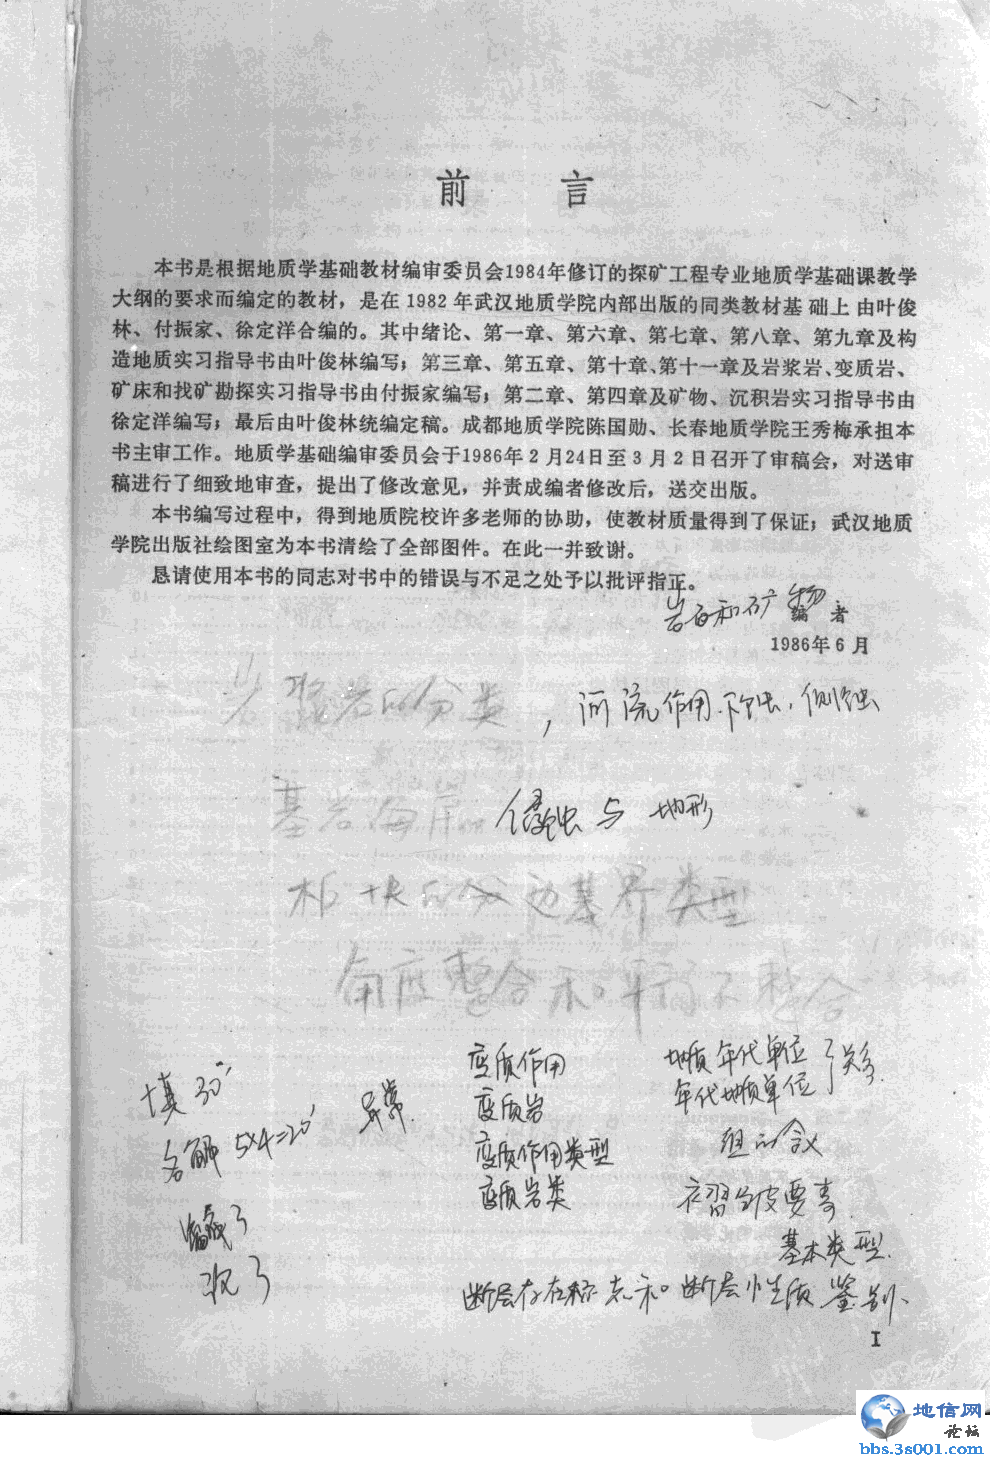 前 言
本书是根据地质学基础教材编审委员会1984年修订的探矿工程专业地质学基础课教学
大纲的要求而编定的教材，是在1982年武汉地质学院内部出版的同类教材基础上由叶俊
林、付振家、徐定洋合编的。其中绪论、第一章、第六章、第七章、第八章、第九章及构
造地质实习指导书由叶俊林编写；第三章、第五章、第十章、第十一章及岩浆岩、变质岩、
矿床和找矿勘探实习指导书由付振家编写；第二章、第四章及矿物、沉积岩实习指导书由
徐定洋编写；最后由叶俊林统编定稿。成都地质学院陈国勋、长春地质学院王秀梅承担本
书主审工作。地质学基础编审委员会于1986年2月24日至3月2日召开了审稿会，对送审
稿进行了细致地审查，提出了修改意见，并责成编者修改后，送交出版。
本书编写过程中，得到地质院校许多老师的协助，使教材质量得到了保证；武汉地质
学院出版社绘图室为本书清绘了全部图件。在此一并致谢。
恳请使用本书的同志对书中的错误与不足之处予以批评指正。
岩石和矿物
编 者
1986年6月
岩浆岩的分类，河流作用.下蚀.侧蚀
基岩海岸 侵蚀与地形
板块的分边界类型
角度整合和平行不整合
变质作用 地质年代单位
填30' 变质岩 年代地质单位
名解5×4=20' 变质作用类型 组的含义
变质岩类 褶皱要素
基本类型
断层存在标志和断层性质鉴别.
I
地信网
论坛
bbs.3s001.com